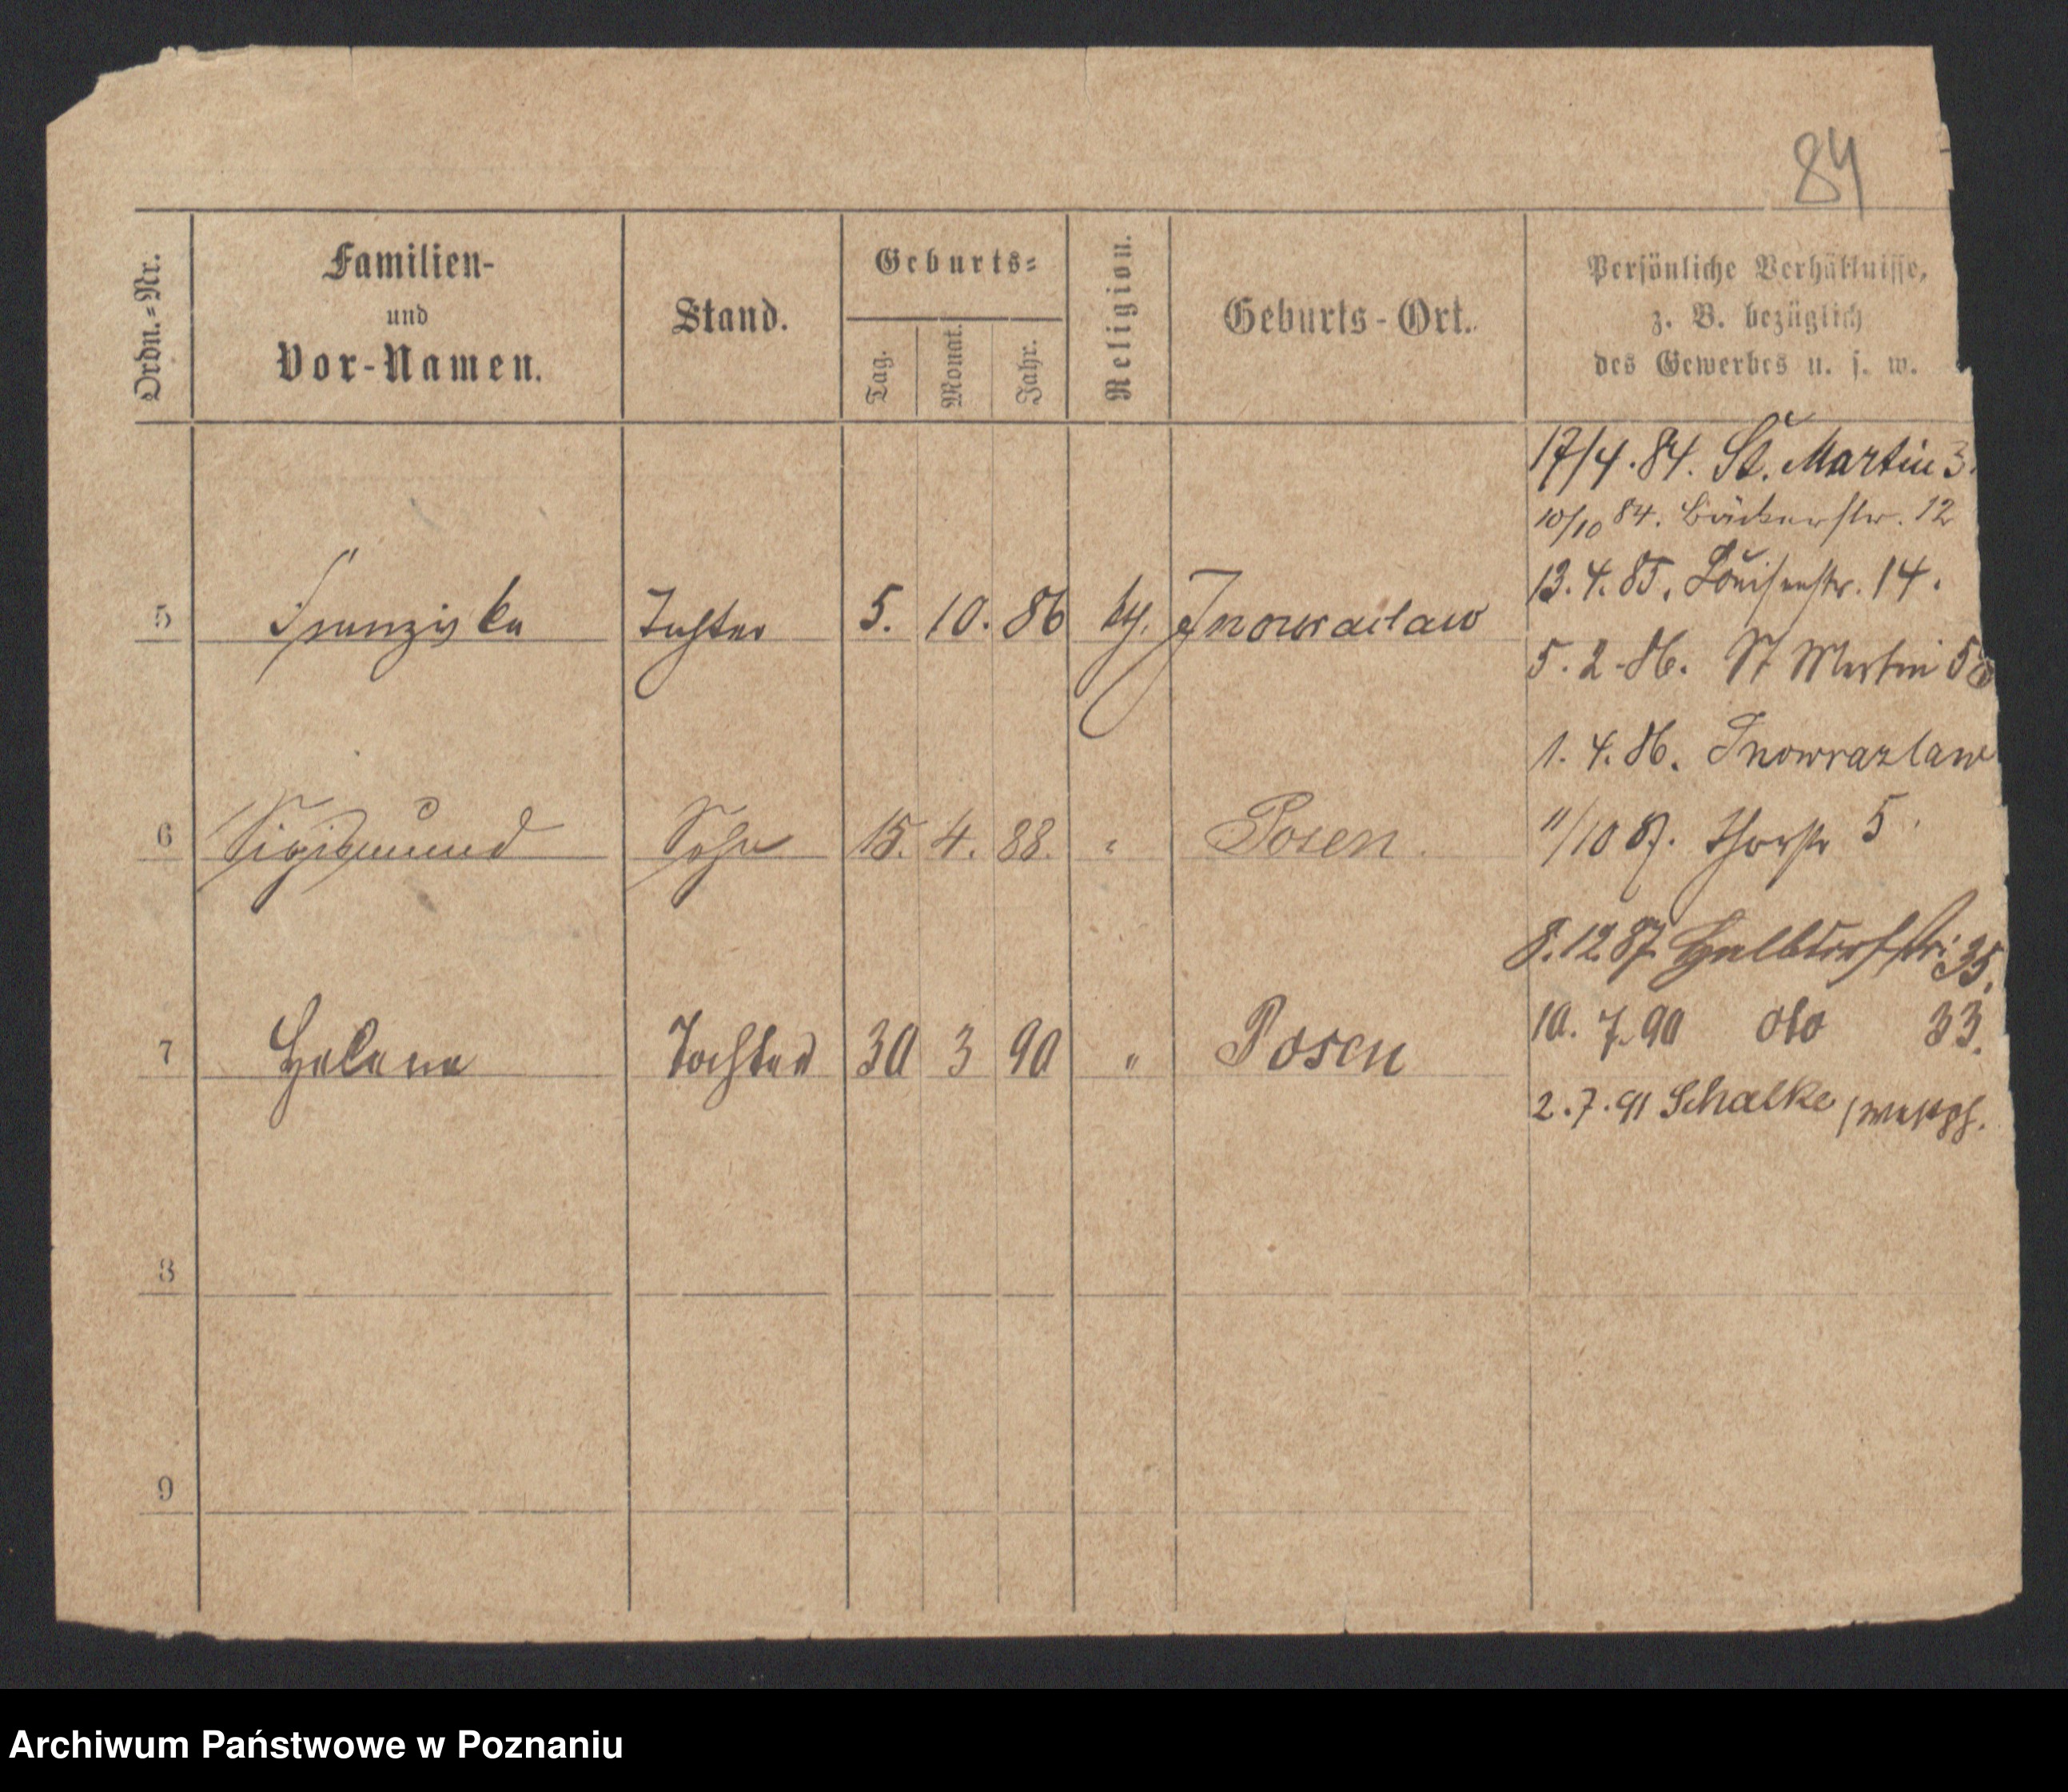 84
Ordn.-Nr.
Familien-
und
Vor-Namen.
Stand.
Geburts-
Tag.
Monat.
Jahr.
Religion.
Geburts-Ort.
Persönliche Verhältnisse,
z. B. bezüglich
des Gewerbes u. s. w.
17/4.84. St. Martin 3.
10/10 84. Bäckerstr. 12
13.4.85. Louisenstr. 14.
5 Franziska Tochter 5. 10. 86 Inowraclaw
5.2.86. St Martin 58
1.4.86. Inowrazlaw
6 Sigismund Sohn 15. 4. 88. " Posen.
11/10 87. Thorstr 5
8.12.87. Halbdorfstr. 35.
7 Helene Tochter 30 3 90 " Posen
10.7.90 oto 33.
2.7.91 Schalke
8
9
Archiwum Państwowe w Poznaniu